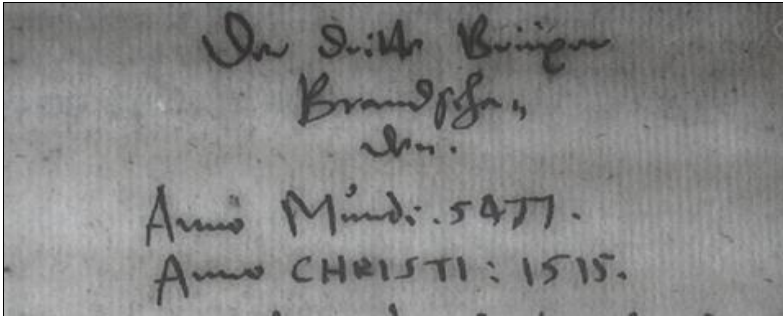 Der dritte Bringer
Brandscha,
den.
Anno Mundi. 5477.
Anno CHRISTI: 1515.